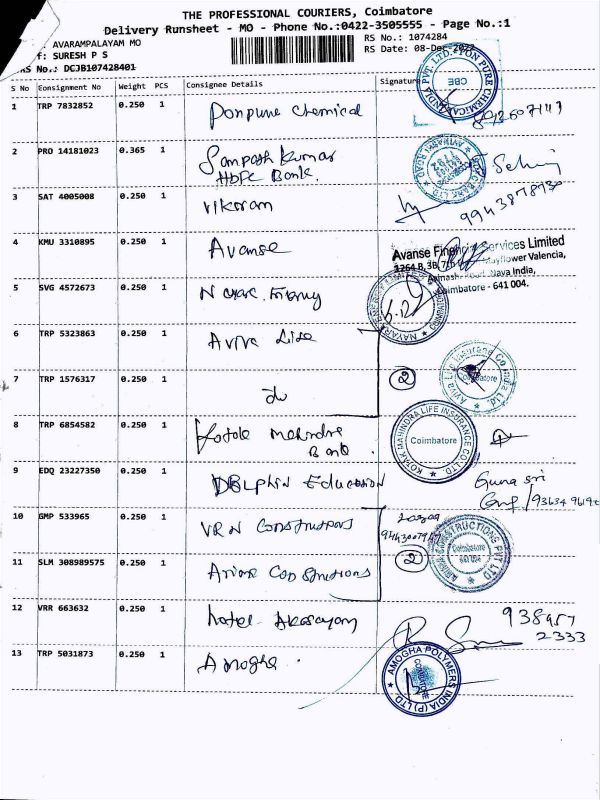 THE PROFESSIONAL COURIERS, Coimbatore
Delivery Runsheet - MO - Phone No.:0422-3505555 - Page No.:1
AVARAMPALAYAM MO
RS No.: 1074284
f: SURESH P S
RS Date: 08-Dec-2022
RS No.: DCJB107428401
S No Consignment No Weight PCS Consignee Details Signature
1 TRP 7832852 0.250 1 Ponpure Chemical
2 PRO 14181023 0.365 1 Sampath Kumar
HDFC Bank.
3 SAT 4005008 0.250 1 Vikaram
9943878730
4 KMU 3310895 0.250 1 Avanse
Avanse Financial Services Limited
1264 B, 3B, Mayflower Valencia,
Avinashi Road, Nava India,
Coimbatore - 641 004.
5 SVG 4572673 0.250 1
6 TRP 5323863 0.250 1 Aviva Life
Aviva Life Insurance Co India Ltd
Coimbatore
7 TRP 1576317 0.250 1 do
2
8 TRP 6854582 0.250 1 Kotak Mahindra
Bank.
KOTAK MAHINDRA LIFE INSURANCE CO LTD.
Coimbatore
9 EDQ 23227350 0.250 1 DELPHIN Education
Guna sri
10 GMP 533965 0.250 1 VRN Constructions
CONSTRUCTIONS PVT LTD
Coimbatore
11 SLM 308989575 0.250 1 Constructions
2
12 VRR 663632 0.250 1 hotel
2333
13 TRP 5031873 0.250 1 Amogha.
AMOGHA POLYMERS INDIA (P) LTD.